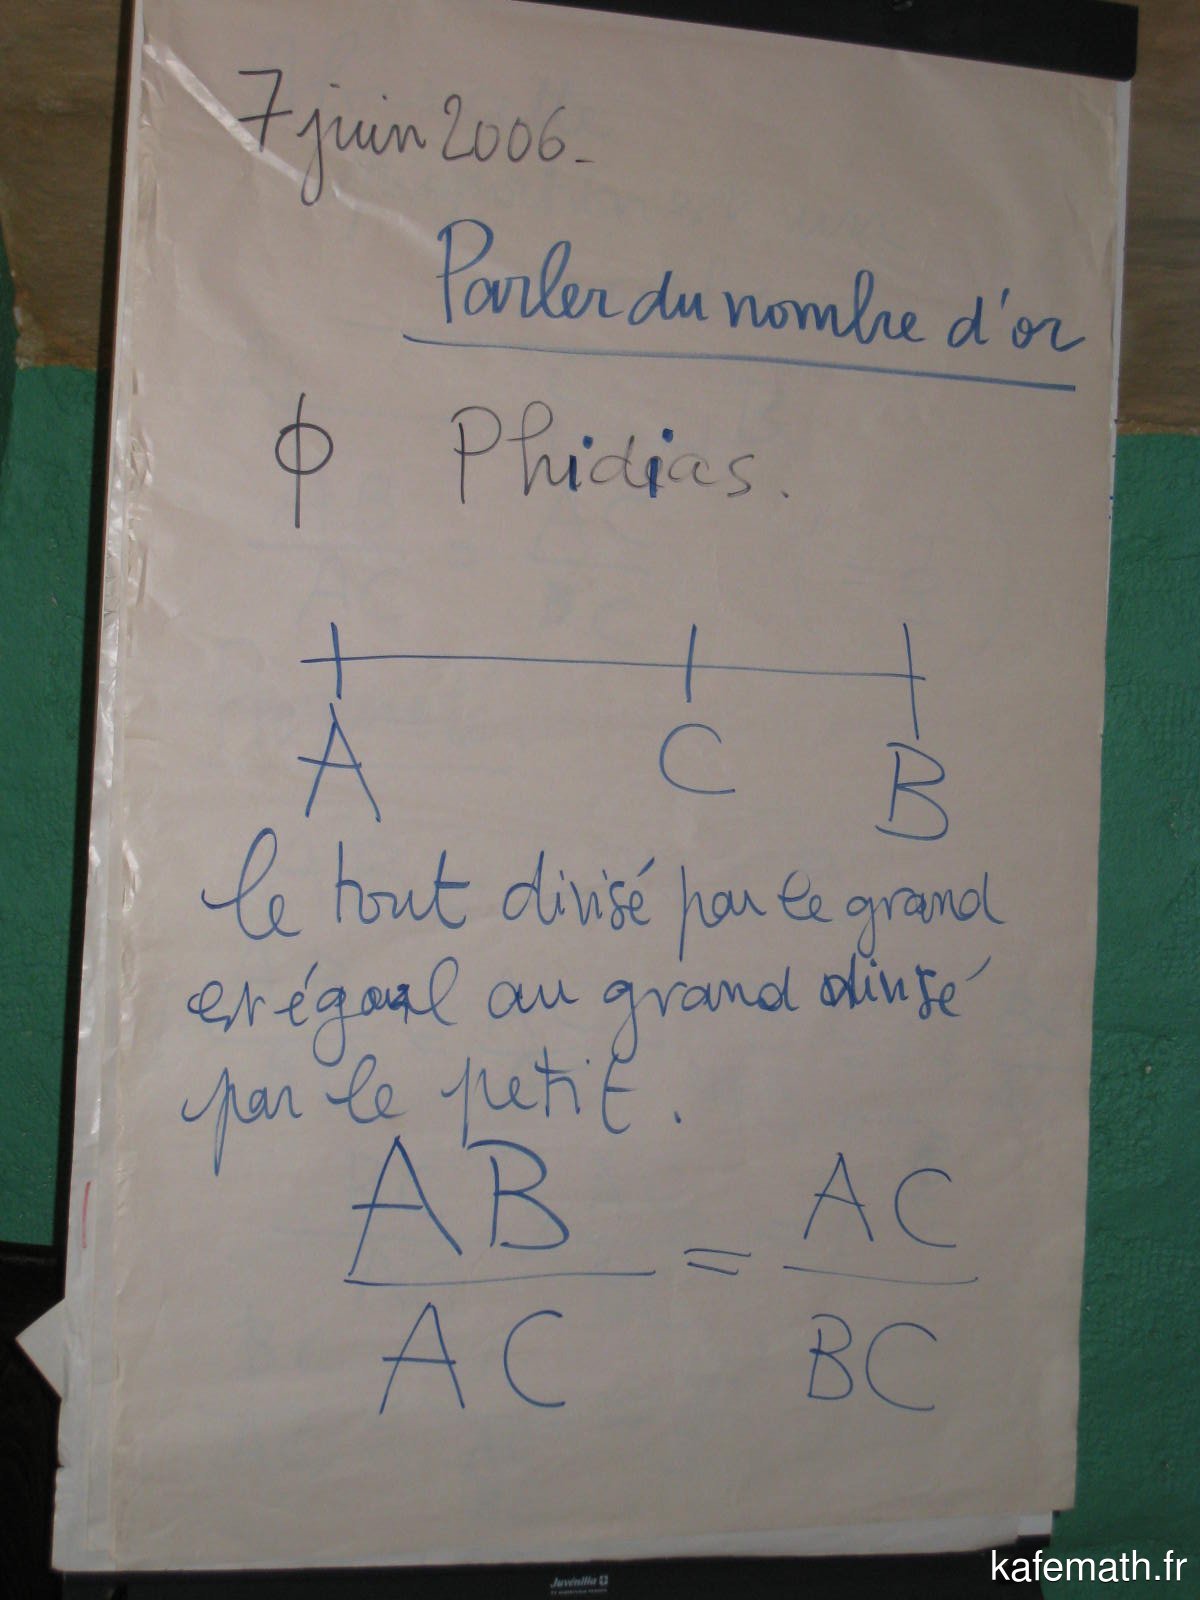 7 juin 2006.
Parler du nombre d'or
ϕ Phidias.
A C B
le tout divisé par le grand
est égal au grand divisé
par le petit.
AB = AC
AC BC
Juvénilia
kafemath.fr